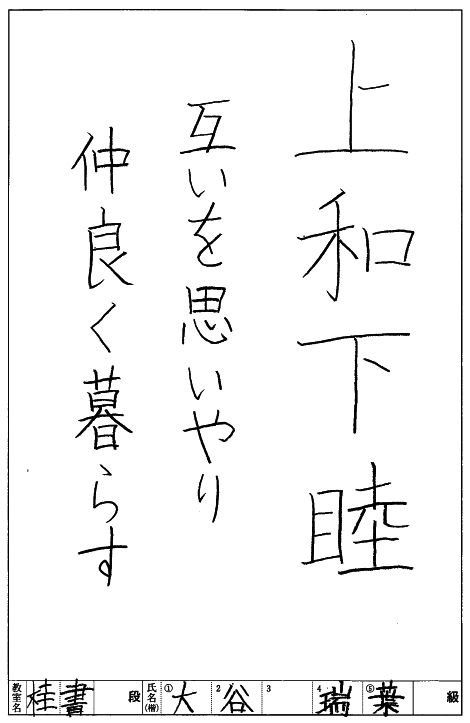 上和下睦
互いを思いやり
仲良く暮らす
教室名 佳書 段 氏名(楷) ① 大 2 谷 3 4 瑞 ⑤ 葉 級